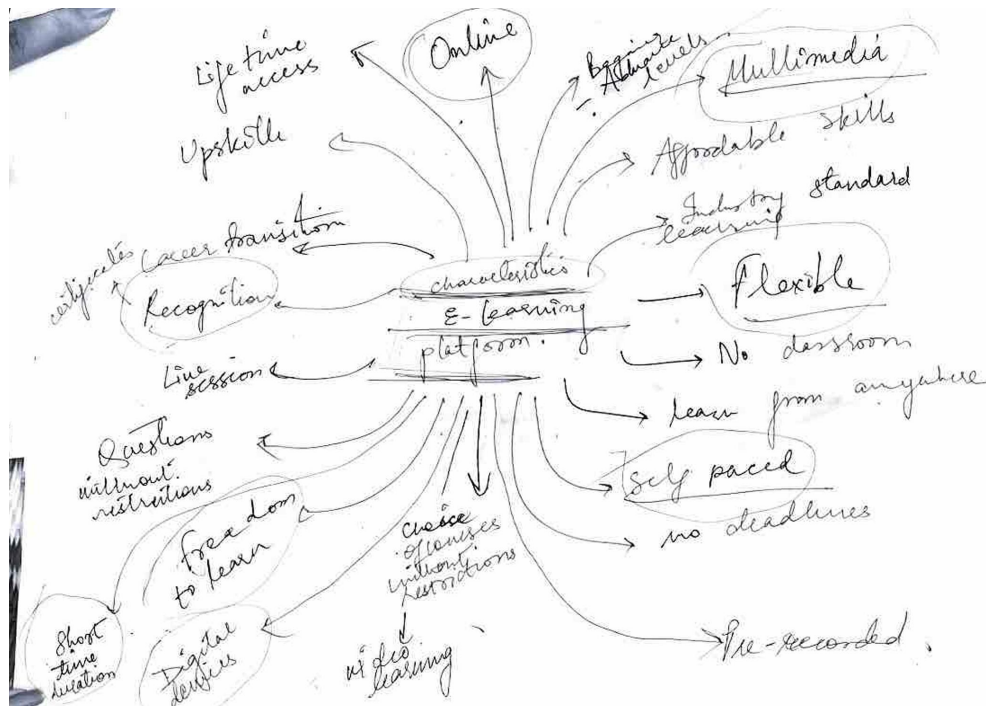 Life time
access
Online
Beginning
- Advance
levels
Multimedia
Upskills
Affordable skills
Industry standard
learning
certificates
Career transition
Recognition
characteristics
E-learning
platform.
Flexible
No classroom
Live
session
learn from anywhere
Questions
without
restrictions
Self paced
no deadlines
freedom
to learn
choose
of courses
without
restrictions
Short
time
duration
Digital
devices
video
learning
Pre-recorded.